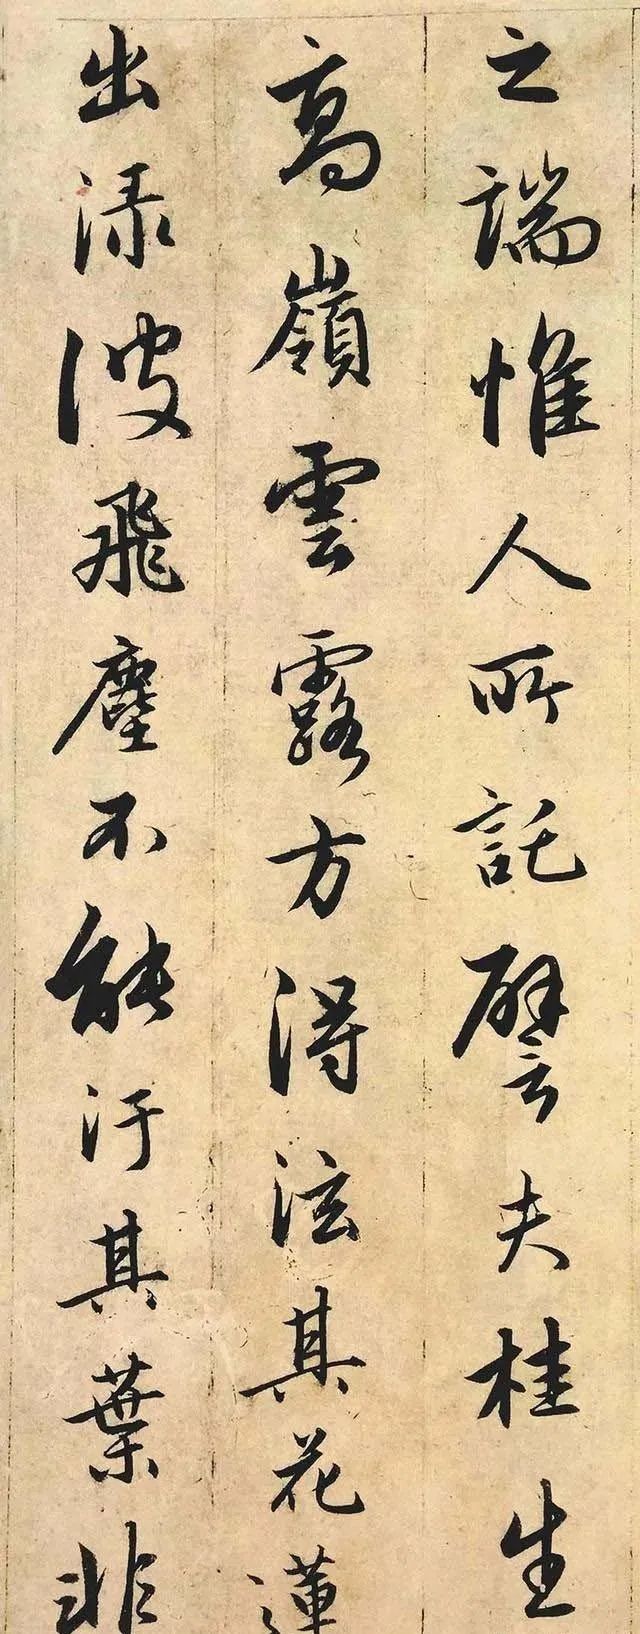 之端惟人所託譬夫桂生
高嶺雲露方得泫其花蓮
出渌波飛塵不能汙其葉非